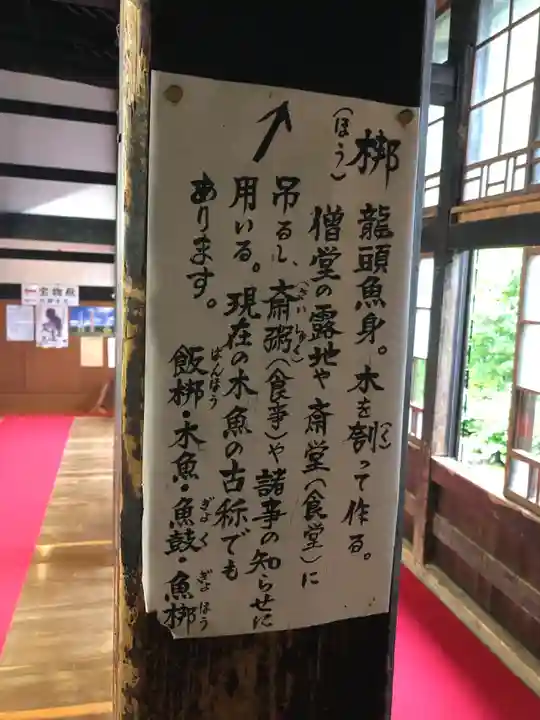 梆 龍頭魚身。木を刳って作る。
(ほう) (く)
僧堂の露地や斎堂(食堂)に
吊るし、斎粥(食事)や諸事の知らせに
(さいしゅく)
用いる。現在の木魚の古称でも
あります。
飯梆・木魚・魚鼓・魚梆
ばんほう ぎょく ぎょほう
宝物殿